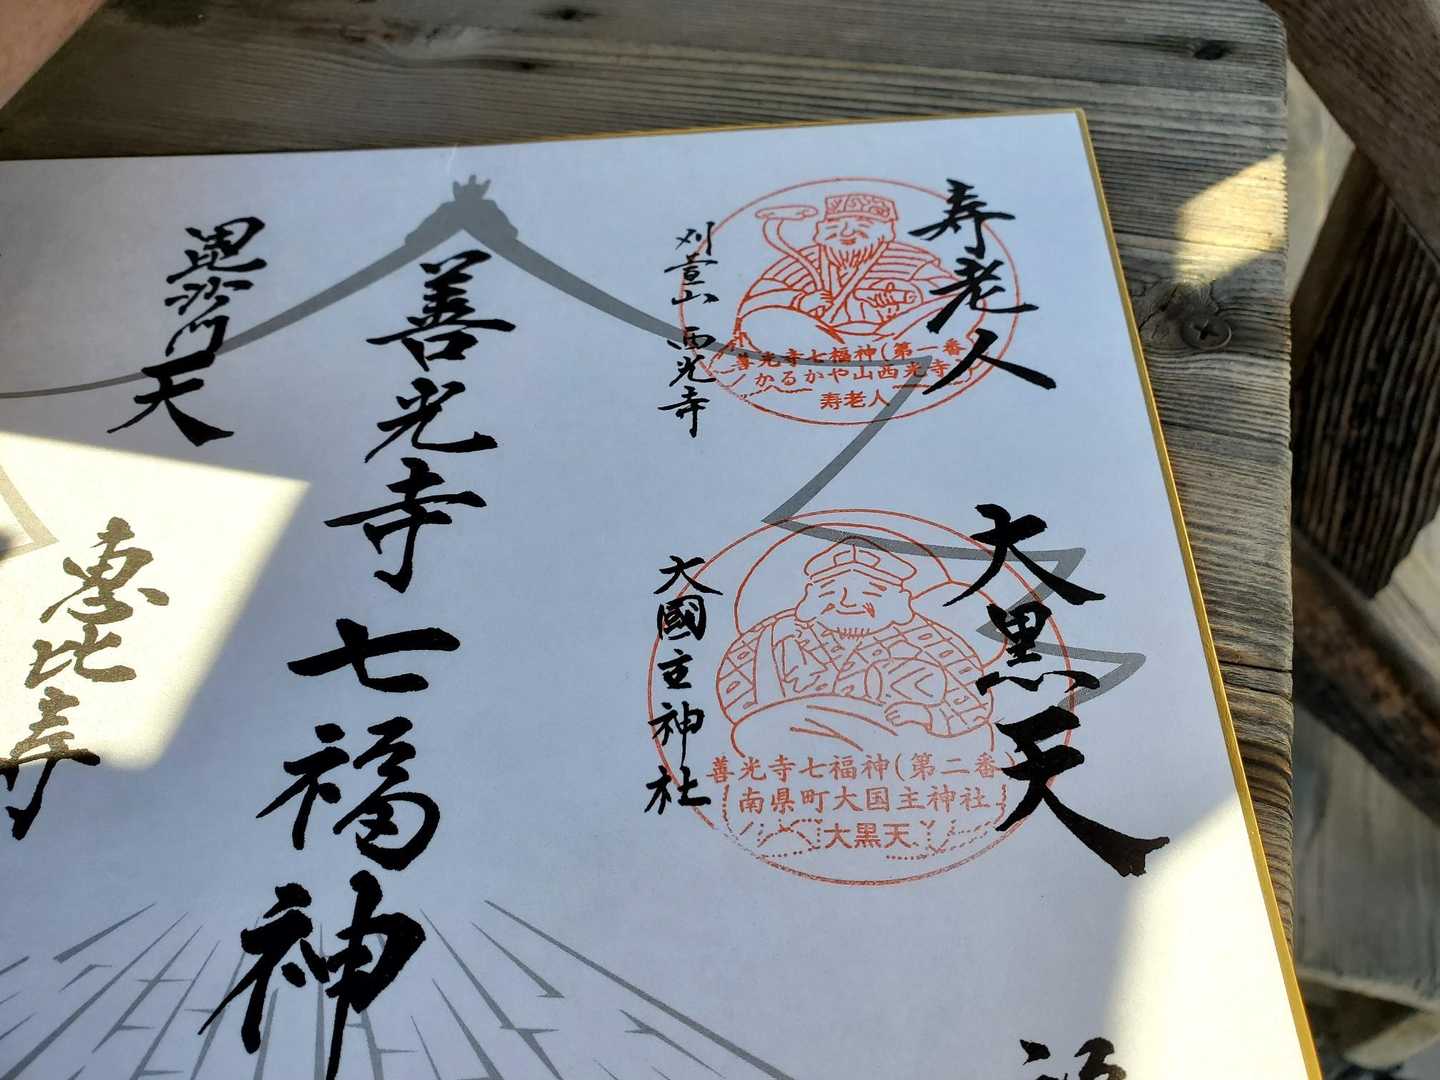 寿老人
善光寺七福神(第一番)
かるかや山西光寺
寿老人
刈萱山 西光寺
大黒天
善光寺七福神(第二番)
南県町大国主神社
大黒天
大國主神社
善光寺七福神
毘沙門天
恵比寿